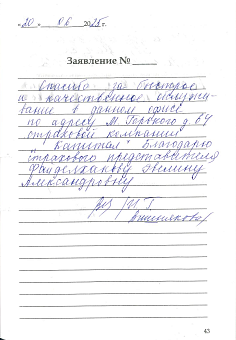 "20" 06 2025г.
Заявление №
Спасибо за быстрое
и качественное обслужи-
вание в данном офисе
по адресу М. Горького д. 64
страховой компании
"Капитал" Благодарю
страхового представителя
Эвелину
Александровну
43